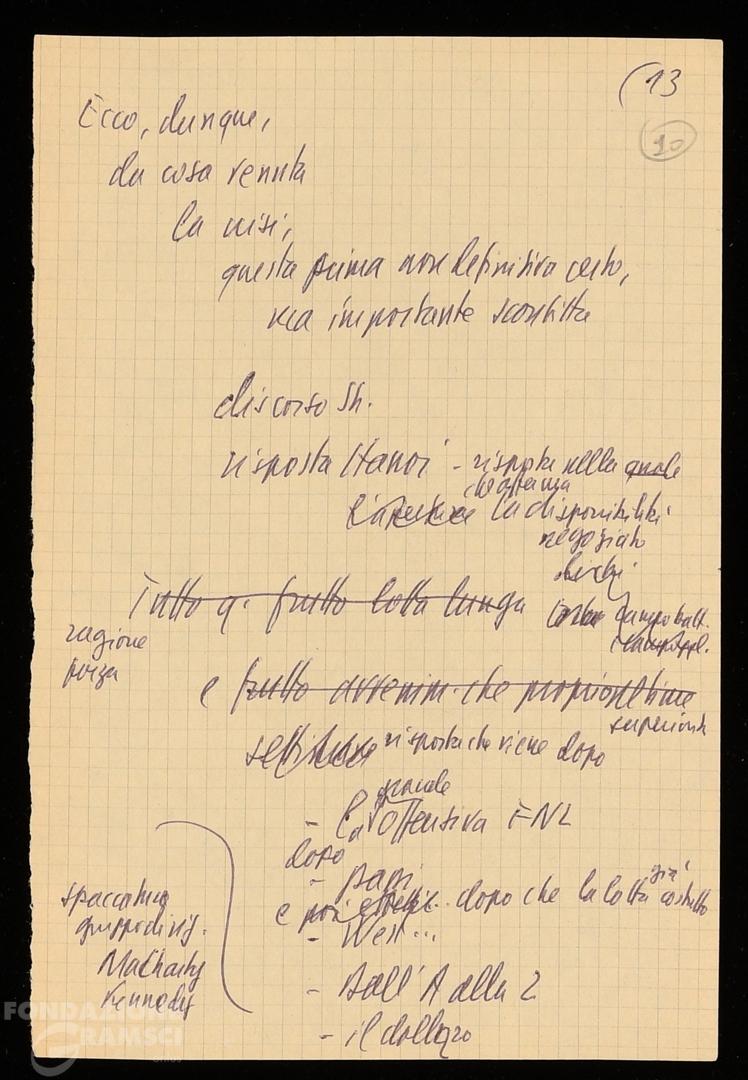 (13
10
Ecco, dunque,
da cosa venuta
la crisi,
questa prima non definitiva certo,
ma importante sconfitta
discorso Jh.
risposta Hanoi - risposta nella quale
la disponibilità
negoziato
Tutto q. frutto lotta lunga
campo batt.
ragione
forza
e frutto avvenim. che proprio ultime
superiorità
settimane risposta che viene dopo
grande
- La offensiva FNL
dopo
-
e poi dopo che la lotta già costretto
- West...
- Dall'A alla Z
- il dollaro
spaccatura
gruppo dirig.
MacCharty
Kennedy
FONDAZIONE
GRAMSCI
ONLUS